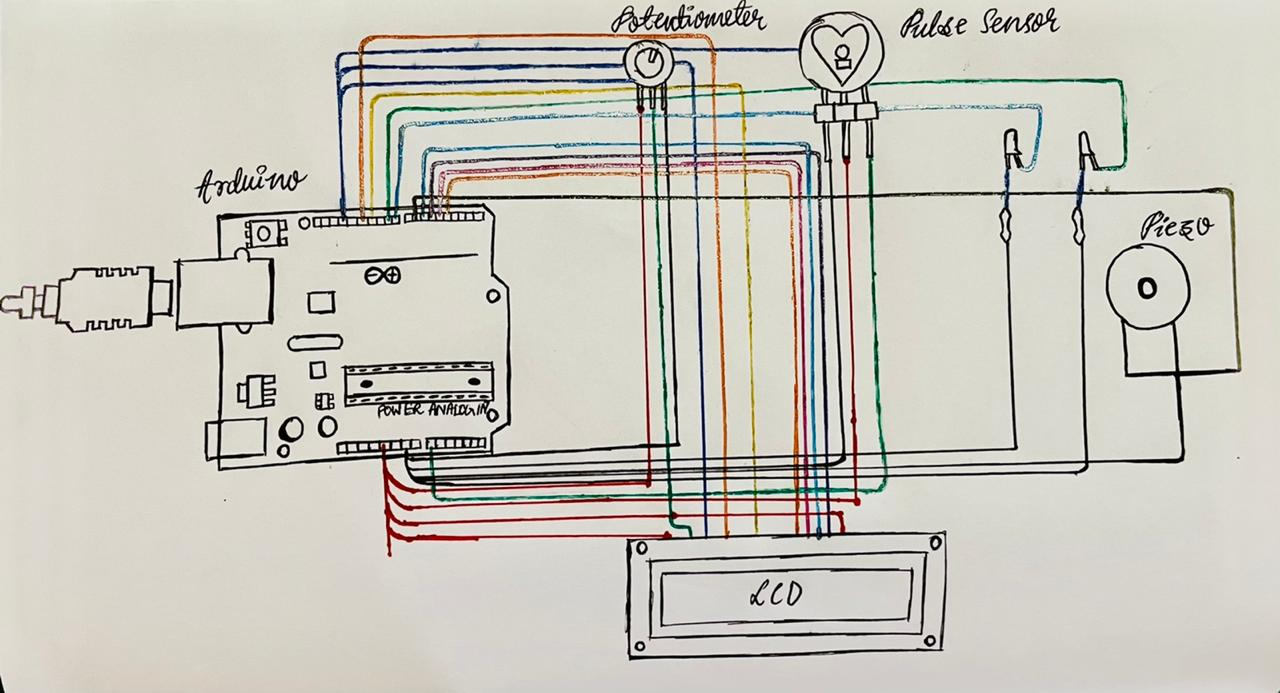 Potentiometer
Pulse Sensor
Arduino
Piezo
POWER ANALOG IN
LCD